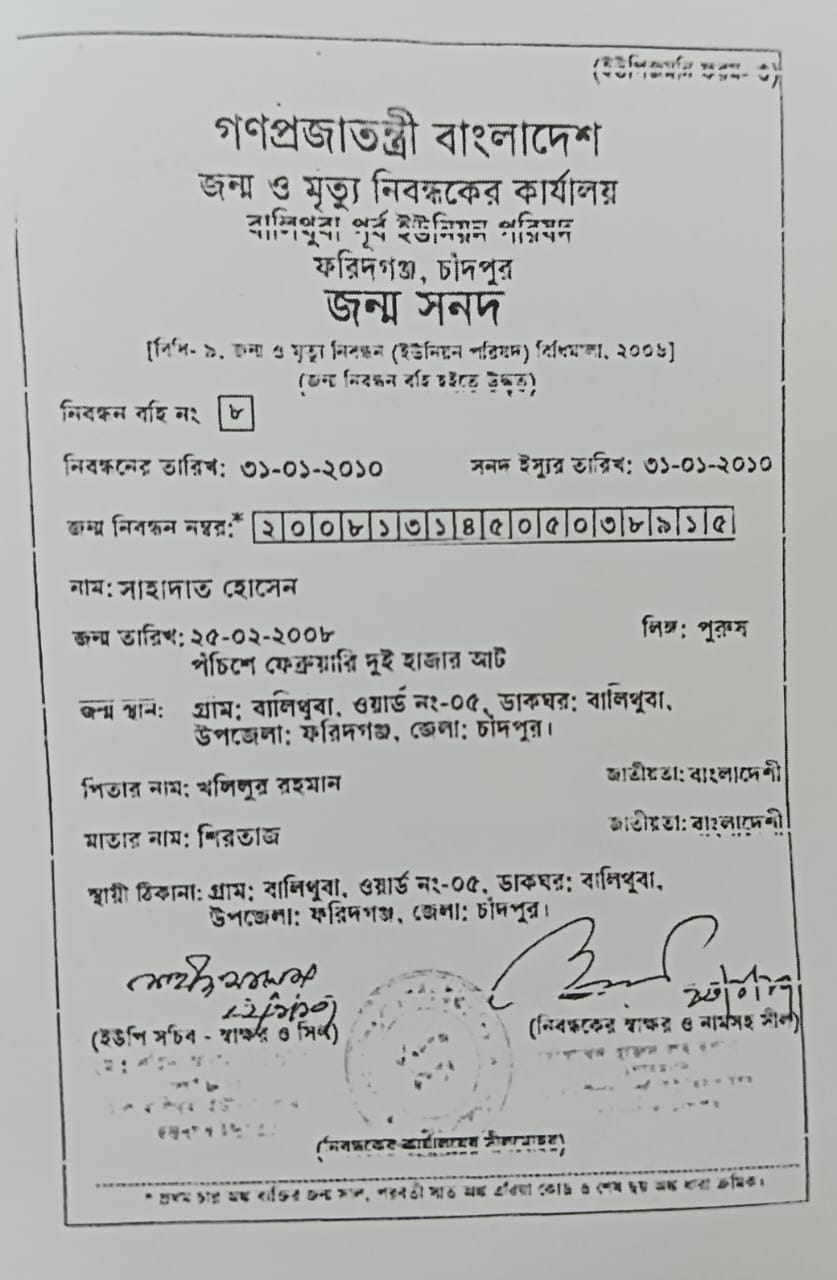 (ইউপিজমনি ফরম- ৩)
গণপ্রজাতন্ত্রী বাংলাদেশ
জন্ম ও মৃত্যু নিবন্ধকের কার্যালয়
বালিথুবা পূর্ব ইউনিয়ন পরিষদ
ফরিদগঞ্জ, চাঁদপুর
জন্ম সনদ
[বিধি- ৯, জন্ম ও মৃত্যু নিবন্ধন (ইউনিয়ন পরিষদ) বিধিমালা, ২০০৬]
(জন্ম নিবন্ধন বহি হইতে উদ্ধৃত)
নিবন্ধন বহি নং ৮
নিবন্ধনের তারিখ: ৩১-০১-২০১০ সনদ ইস্যুর তারিখ: ৩১-০১-২০১০
জন্ম নিবন্ধন নম্বর:* ২০০৮১৩১৪৫০৫০৩৮৯১৫
নাম: সাহাদাত হোসেন
জন্ম তারিখ: ২৫-০২-২০০৮ লিঙ্গ: পুরুষ
পঁচিশে ফেব্রুয়ারি দুই হাজার আট
জন্ম স্থান: গ্রাম: বালিথুবা, ওয়ার্ড নং-০৫, ডাকঘর: বালিথুবা,
উপজেলা: ফরিদগঞ্জ, জেলা: চাঁদপুর।
পিতার নাম: খলিলুর রহমান জাতীয়তা: বাংলাদেশী
মাতার নাম: শিরতাজ জাতীয়তা: বাংলাদেশী
স্থায়ী ঠিকানা: গ্রাম: বালিথুবা, ওয়ার্ড নং-০৫, ডাকঘর: বালিথুবা,
উপজেলা: ফরিদগঞ্জ, জেলা: চাঁদপুর।
(ইউপি সচিব - স্বাক্ষর ও সিল) (নিবন্ধকের স্বাক্ষর ও নামসহ সীল)
(নিবন্ধকের কার্যালয়ের সীলমোহর)
* প্রথম চার অঙ্ক ব্যক্তির জন্ম সাল, পরবর্তী সাত অঙ্ক এরিয়া কোড ও শেষ ছয় অঙ্ক ধারা ক্রমিক।